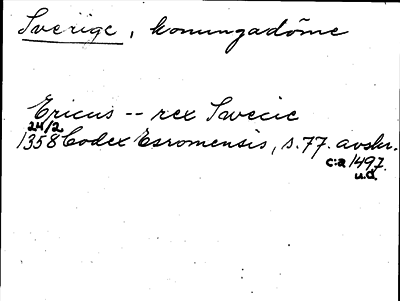 Sverige, konungadöme
Ericus -- rex Swecie
24/2
1358 Codex Esromensis, s. 77. avskr.
c:a 1497.
u.d.